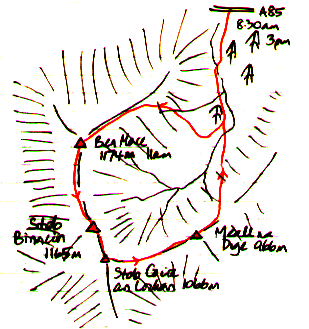 A85
8:30am
3pm
Ben More
1174m 11am
Stob
Binnein
1165m
Stob Coire
an Lochan 1066m
Meall na
Dige 966m